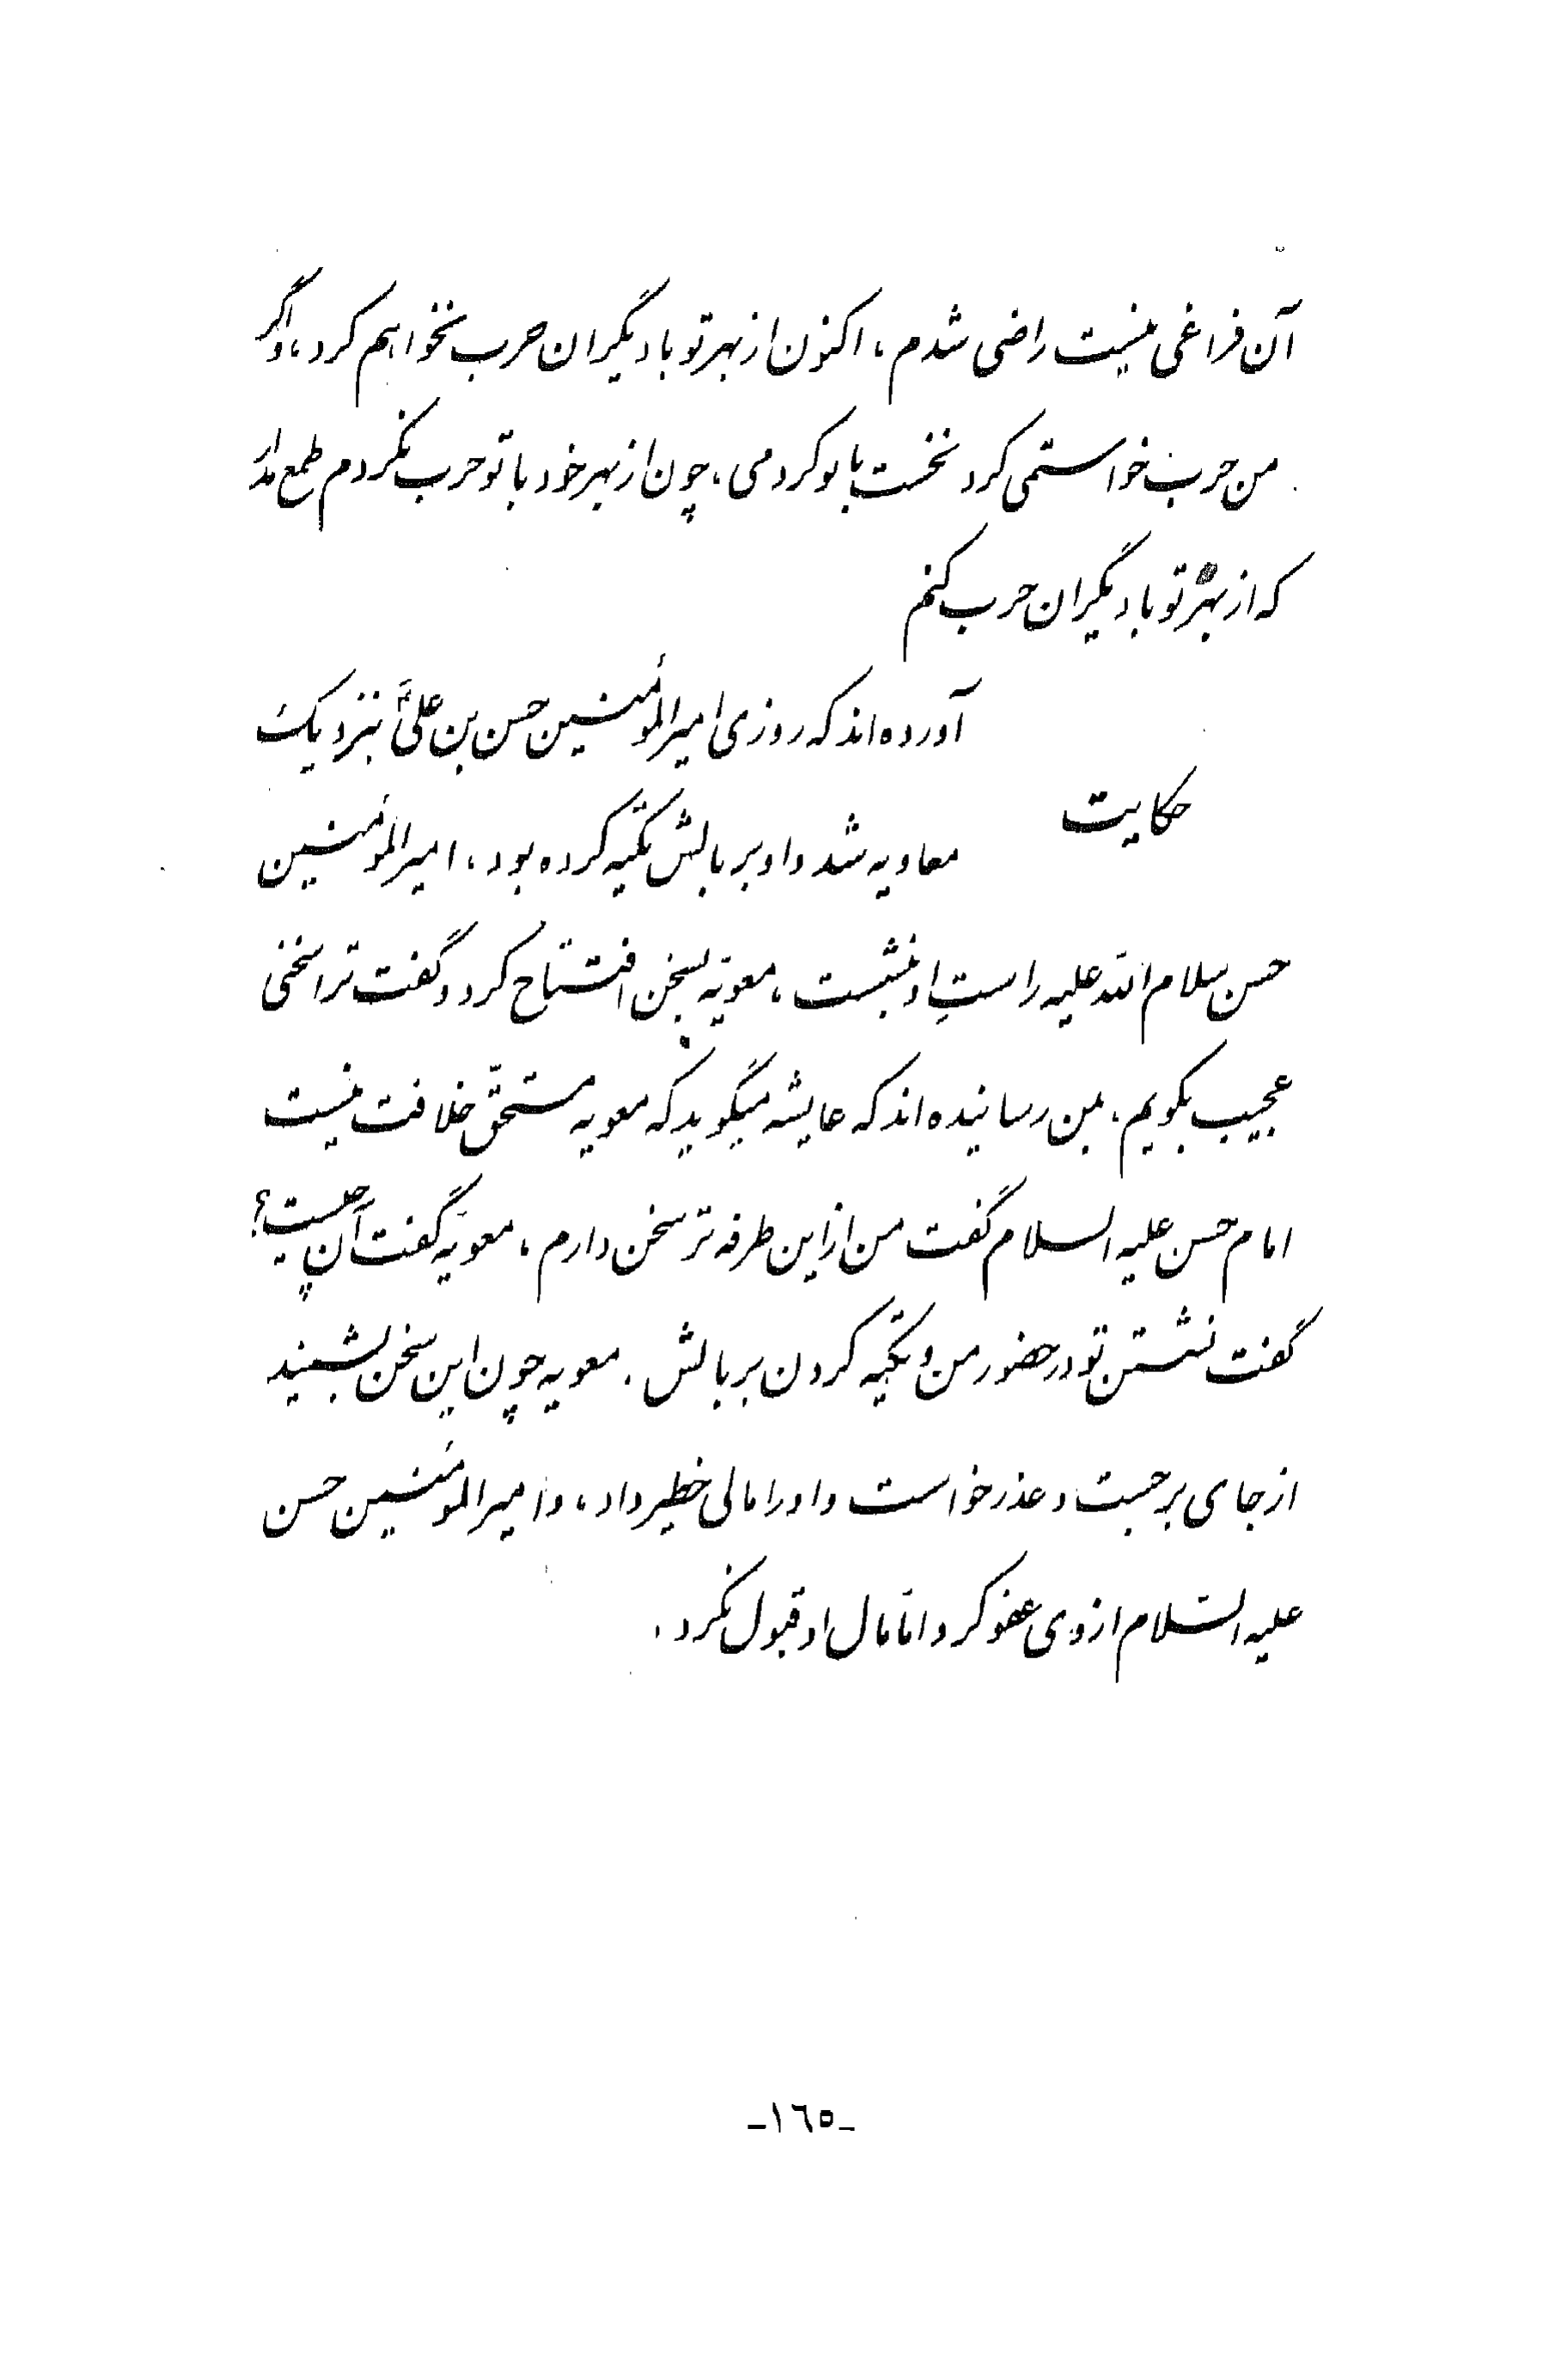 آن فراغی نیست راضی شدم، اکنون از بهر تو با دیگران حرب نخواهم کرد، و اگر
من حرب خواستمی کرد نخست با تو کردمی، چون از بهر خود با تو حرب نکردم طمع مدار
که از بهر تو با دیگران حرب کنم
آورده‌اند که روزی امیرالمؤمنین حسن بن علیّ بنزدیک
حکایت
معاویه شد و او بر بالش تکیه کرده بود، امیرالمؤمنین
حسن سلام الله علیه راستِ او بنشست، معویه بسخن افتتاح کرد و گفت ترا سخنی
عجیب بگویم، بمن رسانیده‌اند که عایشه میگوید که معویه مستحقّ خلافت نیست
امام حسن علیه السلام گفت من از این طرفه تر سخن دارم، معویه گفت آن چیست؟
گفت نشستن تو در حضور من و تکیه کردن بر بالش. معویه چون این سخن بشنید
از جای برجست و عذر خواست و او را مالی خطیر داد، و امیرالمؤمنین حسن
علیه السّلام از وی عفو کرد امّا مال او قبول نکرد.
-١٦٥-